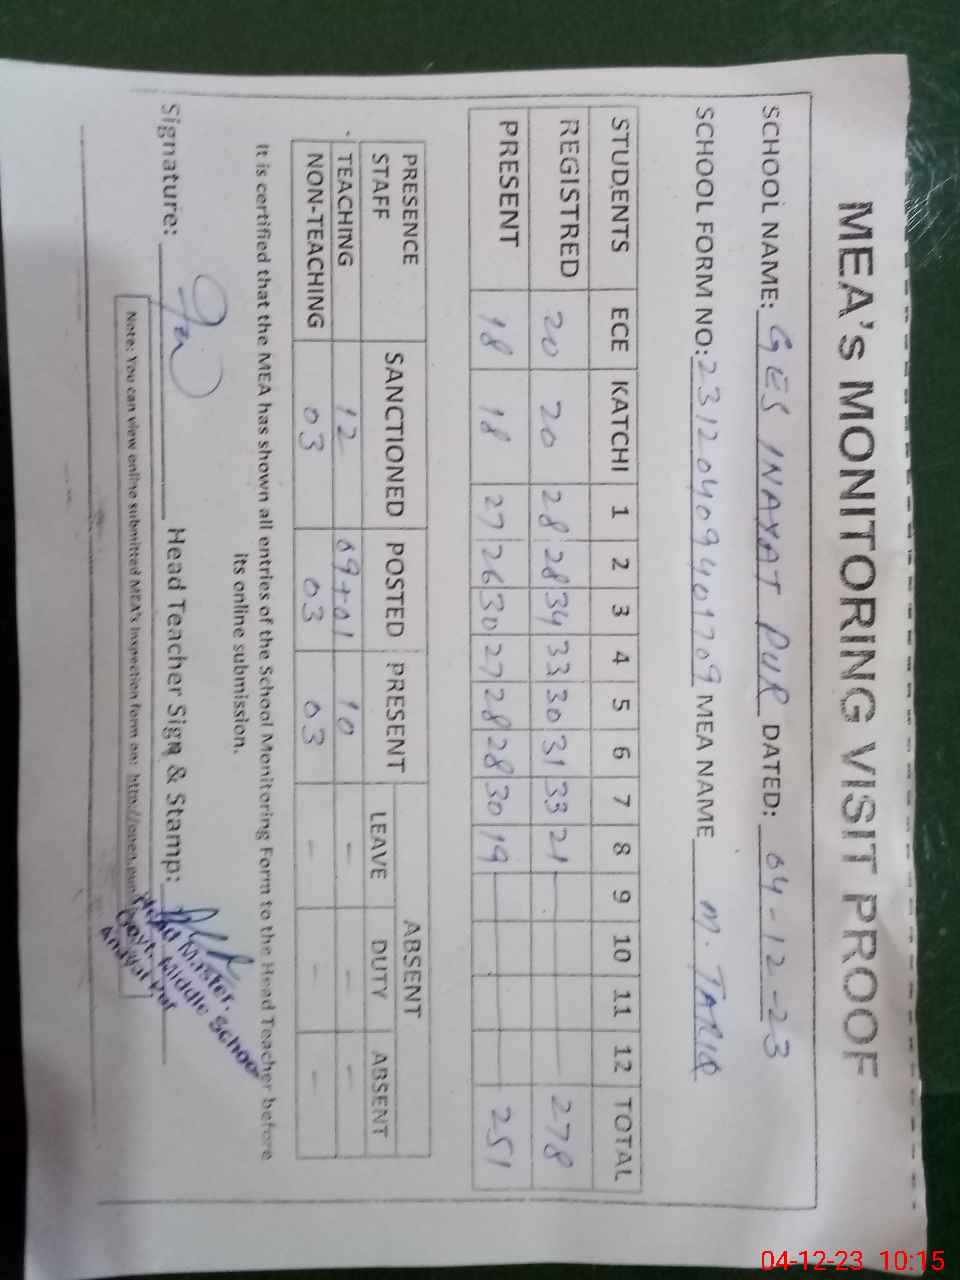 MEA's MONITORING VISIT PROOF
SCHOOL NAME: GES INAYAT PUR DATED: 04-12-23
SCHOOL FORM NO: 23120409401709 MEA NAME M. TARIQ
STUDENTS ECE KATCHI 1 2 3 4 5 6 7 8 9 10 11 12 TOTAL
REGISTRED 20 20 28 28 34 33 30 31 33 21 278
PRESENT 18 18 27 26 30 27 28 28 30 19 251
PRESENCE STAFF SANCTIONED POSTED PRESENT ABSENT
LEAVE DUTY ABSENT
TEACHING 12 09+01 10 - - -
NON-TEACHING 03 03 03 - - -
It is certified that the MEA has shown all entries of the School Monitoring Form to the Head Teacher before
its online submission.
Signature: Head Teacher Sign & Stamp:
Head Master.
Govt. Middle School
Note: You can view online submitted MEA's inspection form on: http://open.punj
04-12-23 10:15